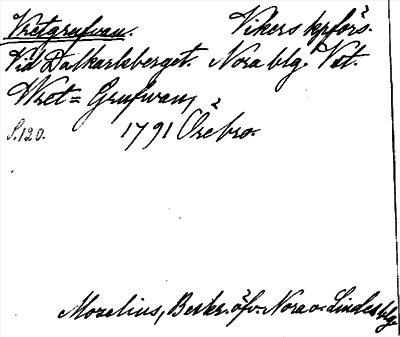 Vretgrufvan. Vikers kpförs.
Vid Dalkarlsberget. Nora blg. Vst.
Wret= Grufwan,
S.120. 1791 Örebro.
Mozelius, Beskr. öfv. Nora o. Lindes blg.